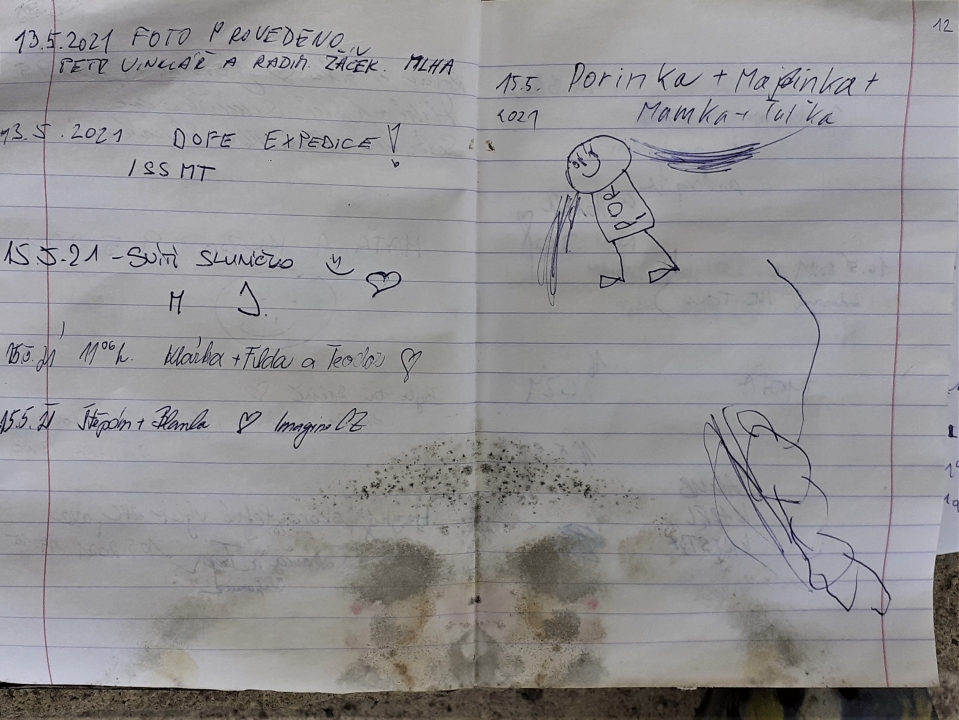 13.5.2021 FOTO PROVEDENO
PETR VINKLÁŘ A RADIM ŽÁČEK. MLHA
13.5.2021 DOFE EXPEDICE!
ISSMT
15.5.21 - SVÍTÍ SLUNÍČKO
M J.
15.5.21 11⁰⁶h. Klárka + Filda a Teodor
15.5.21 Štěpán + Blanka ImagineOZ
12
15.5. Dorinka + Majdinka +
2021 Mamka + Tulka
DOR